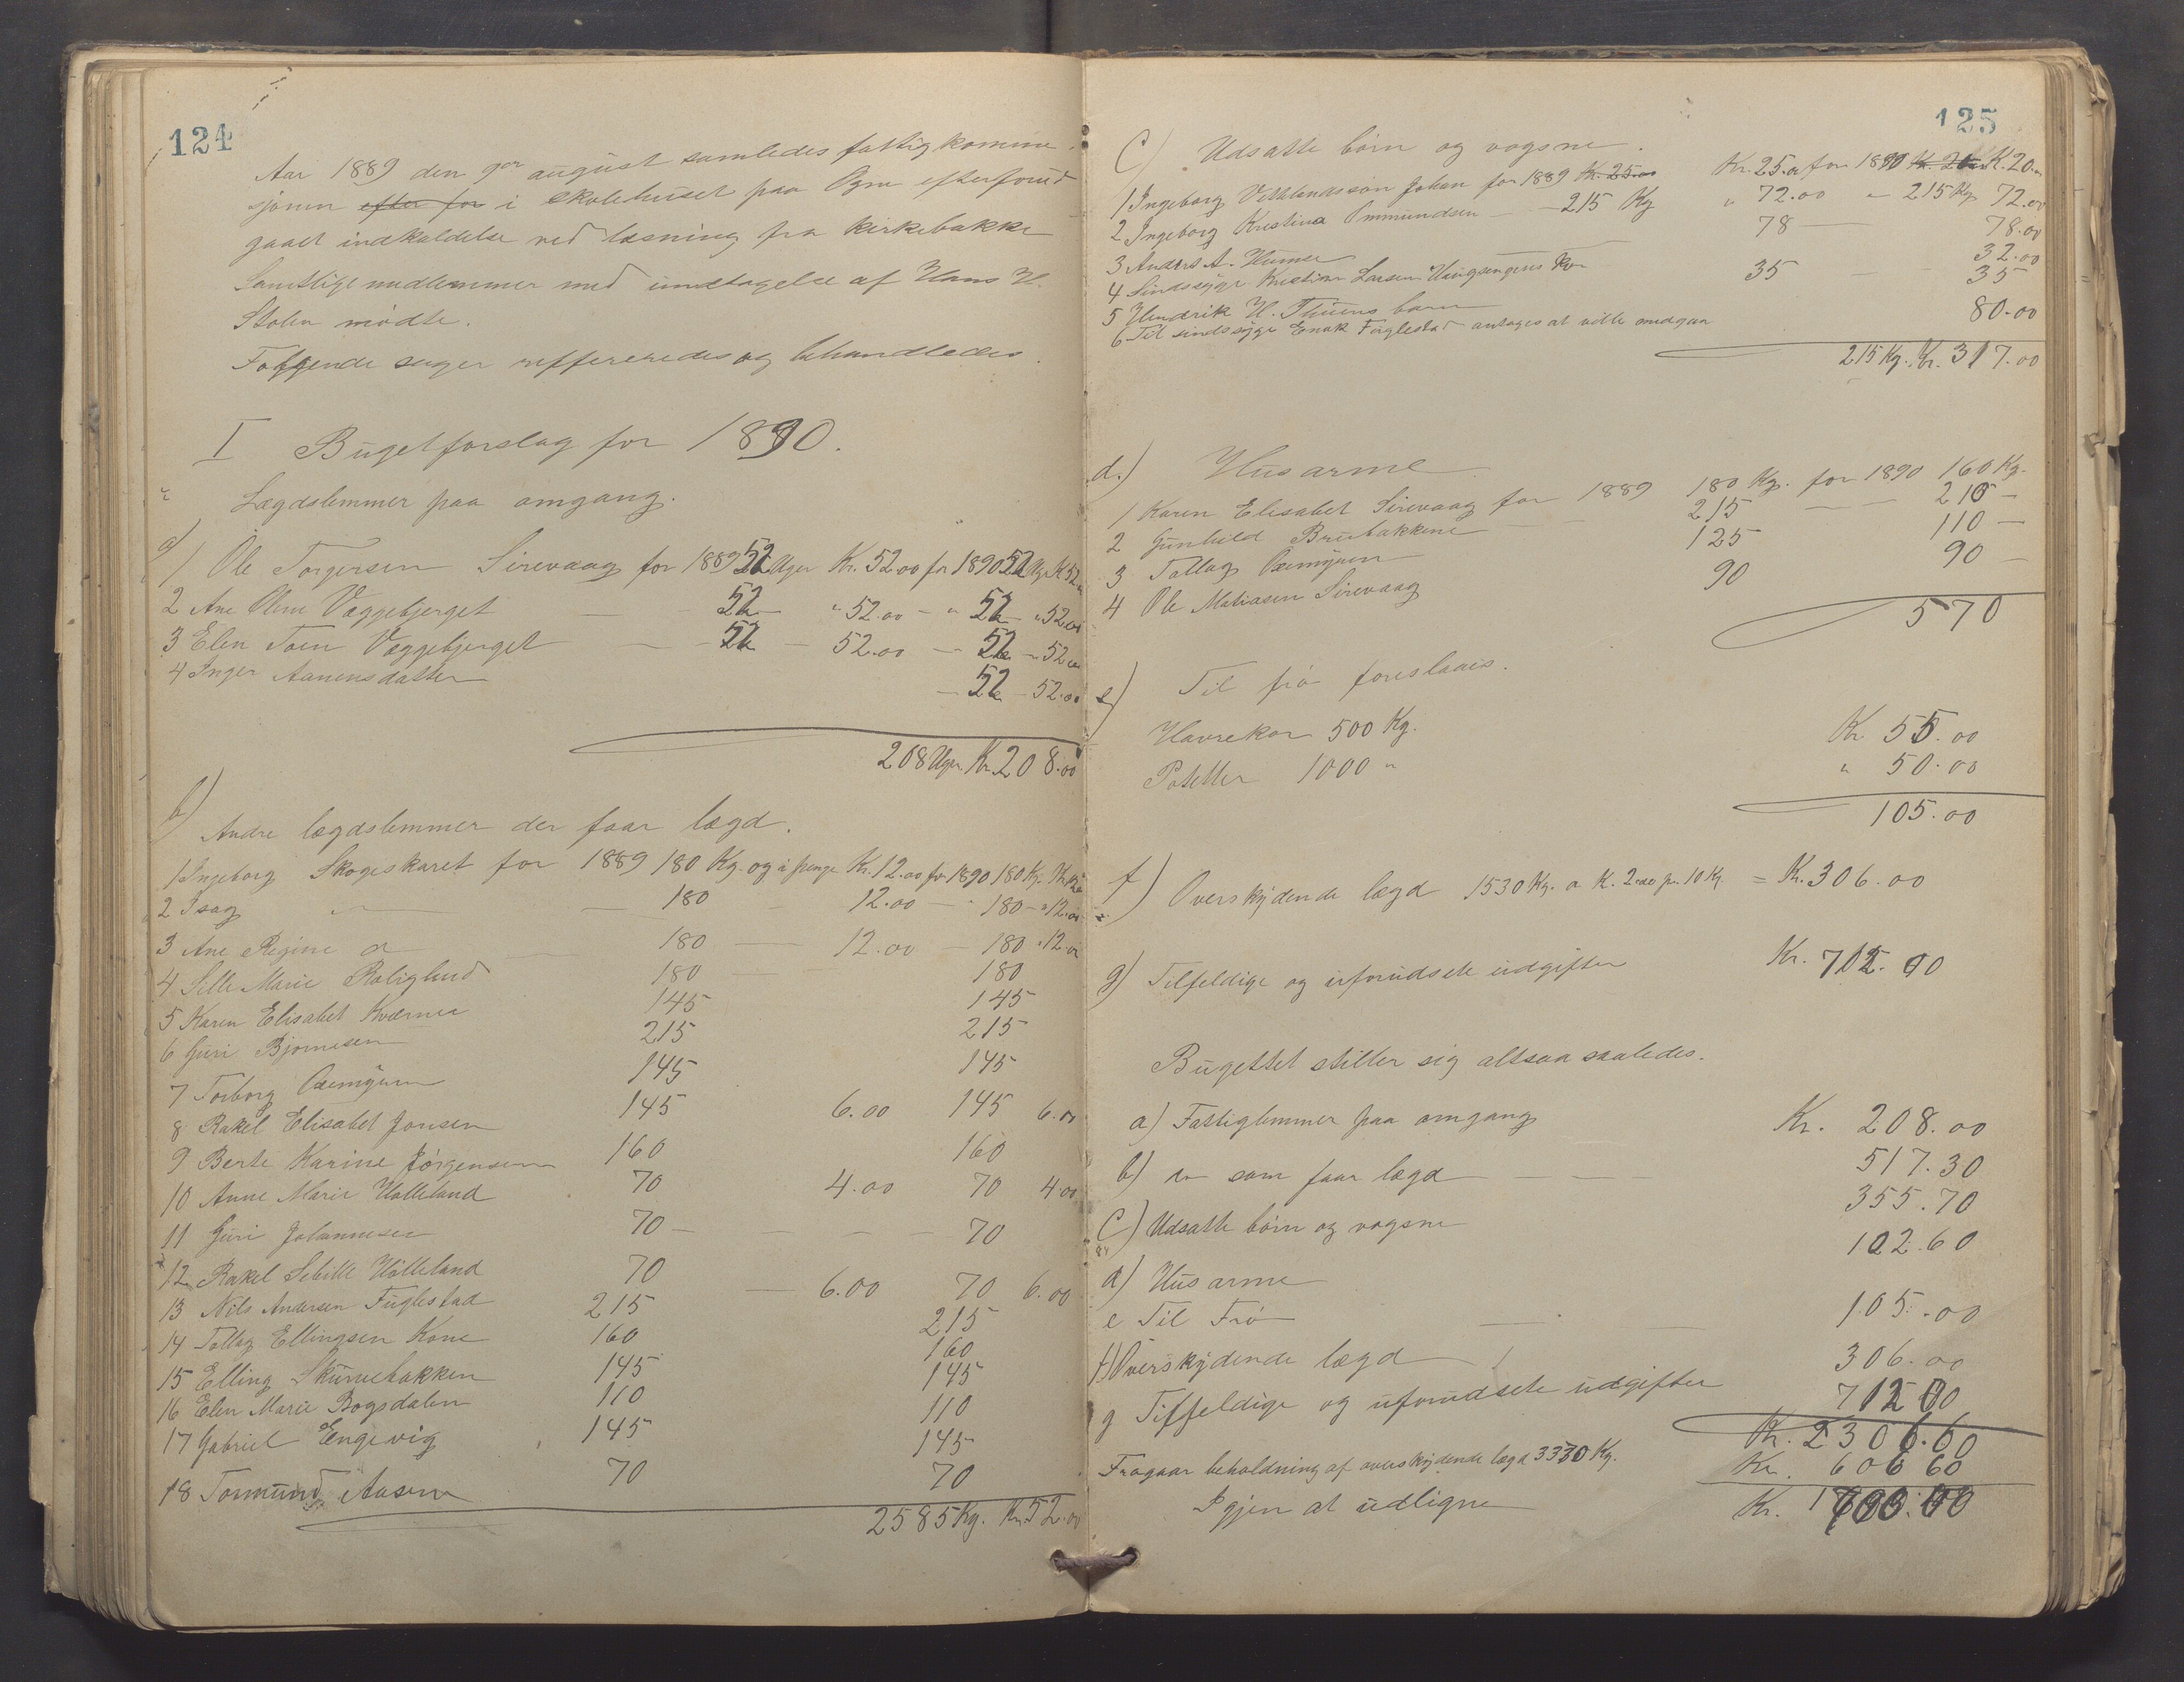 124
Aar 1889 den 9de august samledes fattigkommi-
sjonen efter for i skolehuset paa Ogna efterforud
gaaet indkaldelse ved læsning fra kirkebakke
Samtlige medlemmer med undtagelse af Hans H.
Stolen mødte.
Følgende sager reffereredes og behandledes.
I Bugetforslag for 1890.
Lægdslemmer paa omgang.
a)
1 Ole Torgersen Sirevaag for 1889 52 Uger Kr. 52.00 for 1890 52 Ug. K 52
2 Ane Oline Væggebjerget 52 " 52.00 - " 52 " 52.00
3 Elen Toen Væggebjerget 52 - 52.00 - 52 - 52.00
4 Inger Aanensdatter - 52 - 52.00
208 Uger. Kr. 208.00
b) Andre lægdslemmer der faar lægd.
1 Ingeborg Skogeskaret for 1889 180 Kg. og i penge Kr. 12.00 for 1890 180 Kg. Kr. 12
2 Isag 180 12.00 - 180 - " 12.00
3 Ane Regine 180 - 12.00 - 180 " 12.00
4 Sille Marie 180 180
5 Karen Elisabet 145 145
6 Guri Bjørnesen 215 215
7 Torborg 145 145
8 Rakel Elisabet Jonsen 145 6.00 145 6.00
9 Berte Karine Jørgensen 160 160
10 Anne Marie Hølleland 70 4.00 70 4.00
11 Guri Johannesen 70 - - - - 70
12 Rakel Sebille Hølleland 70 - 6.00 70 6.00
13 Nils Andersen Fuglestad 215 215
14 Tollag Ellingsen Kone 160 160
15 Elling Skurvebakken 145 145
16 Elen Marie Bogsdalen 110 110
17 Gabriel Engevig 145 145
18 Tormund Aasen 70 70
2585 Kg. Kr. 52.00
125
C) Udsatte børn og vogsne.
1 Ingeborg Johan for 1889 Kr. 25.00 Kr. 25.00 for 1890 K. 20.00
2 Ingeborg Kristina Ommundsen - - 215 Kg " 72.00 - 215 Kg 72.00
3 Anders A. 78 - 78.00
4 Sindssyge Kristian Larsen 32.00
5 Hendrik H. barn 35 35
6 Til sindssyge Enok Fuglestad antages at ville medgaa 80.00
215 Kg. Kr. 317.00
d.) Husarme
1 Karen Elisabet Sirevaag for 1889 180 Kg. for 1890 160 Kg.
2 Gunhild Brubakkene 215 - 210 -
3 Tollag 125 110 -
4 Ole Matiasen Sirevaag 90 90 -
570
e) Til frø foreslaaes.
Havrekor 500 Kg. Kr 55.00
Poteter 1000 " " 50.00
105.00
f) Overskydende lægd 1530 Kg. a K. 2.00 pr. 10 Kg = K. 306.00
g) Tilfeldige og uforudsete udgifter Kr. 712.00
Bugettet stiller sig altsaa saaledes.
a) Fattiglemmer paa omgang Kr. 208.00
b) do som faar lægd - - - 517.30
C) Udsatte børn og vogsne 355.70
d) Husarme 102.60
e Til Frø 105.00
f) Overskydende lægd 306.00
g Tilfeldige og uforudsete udgifter 712 00
Kr. 2306.60
Fragaar beholdning af overskydende lægd 3330 Kg. Kr. 606 60
Igjen at udligne Kr. 1700.00